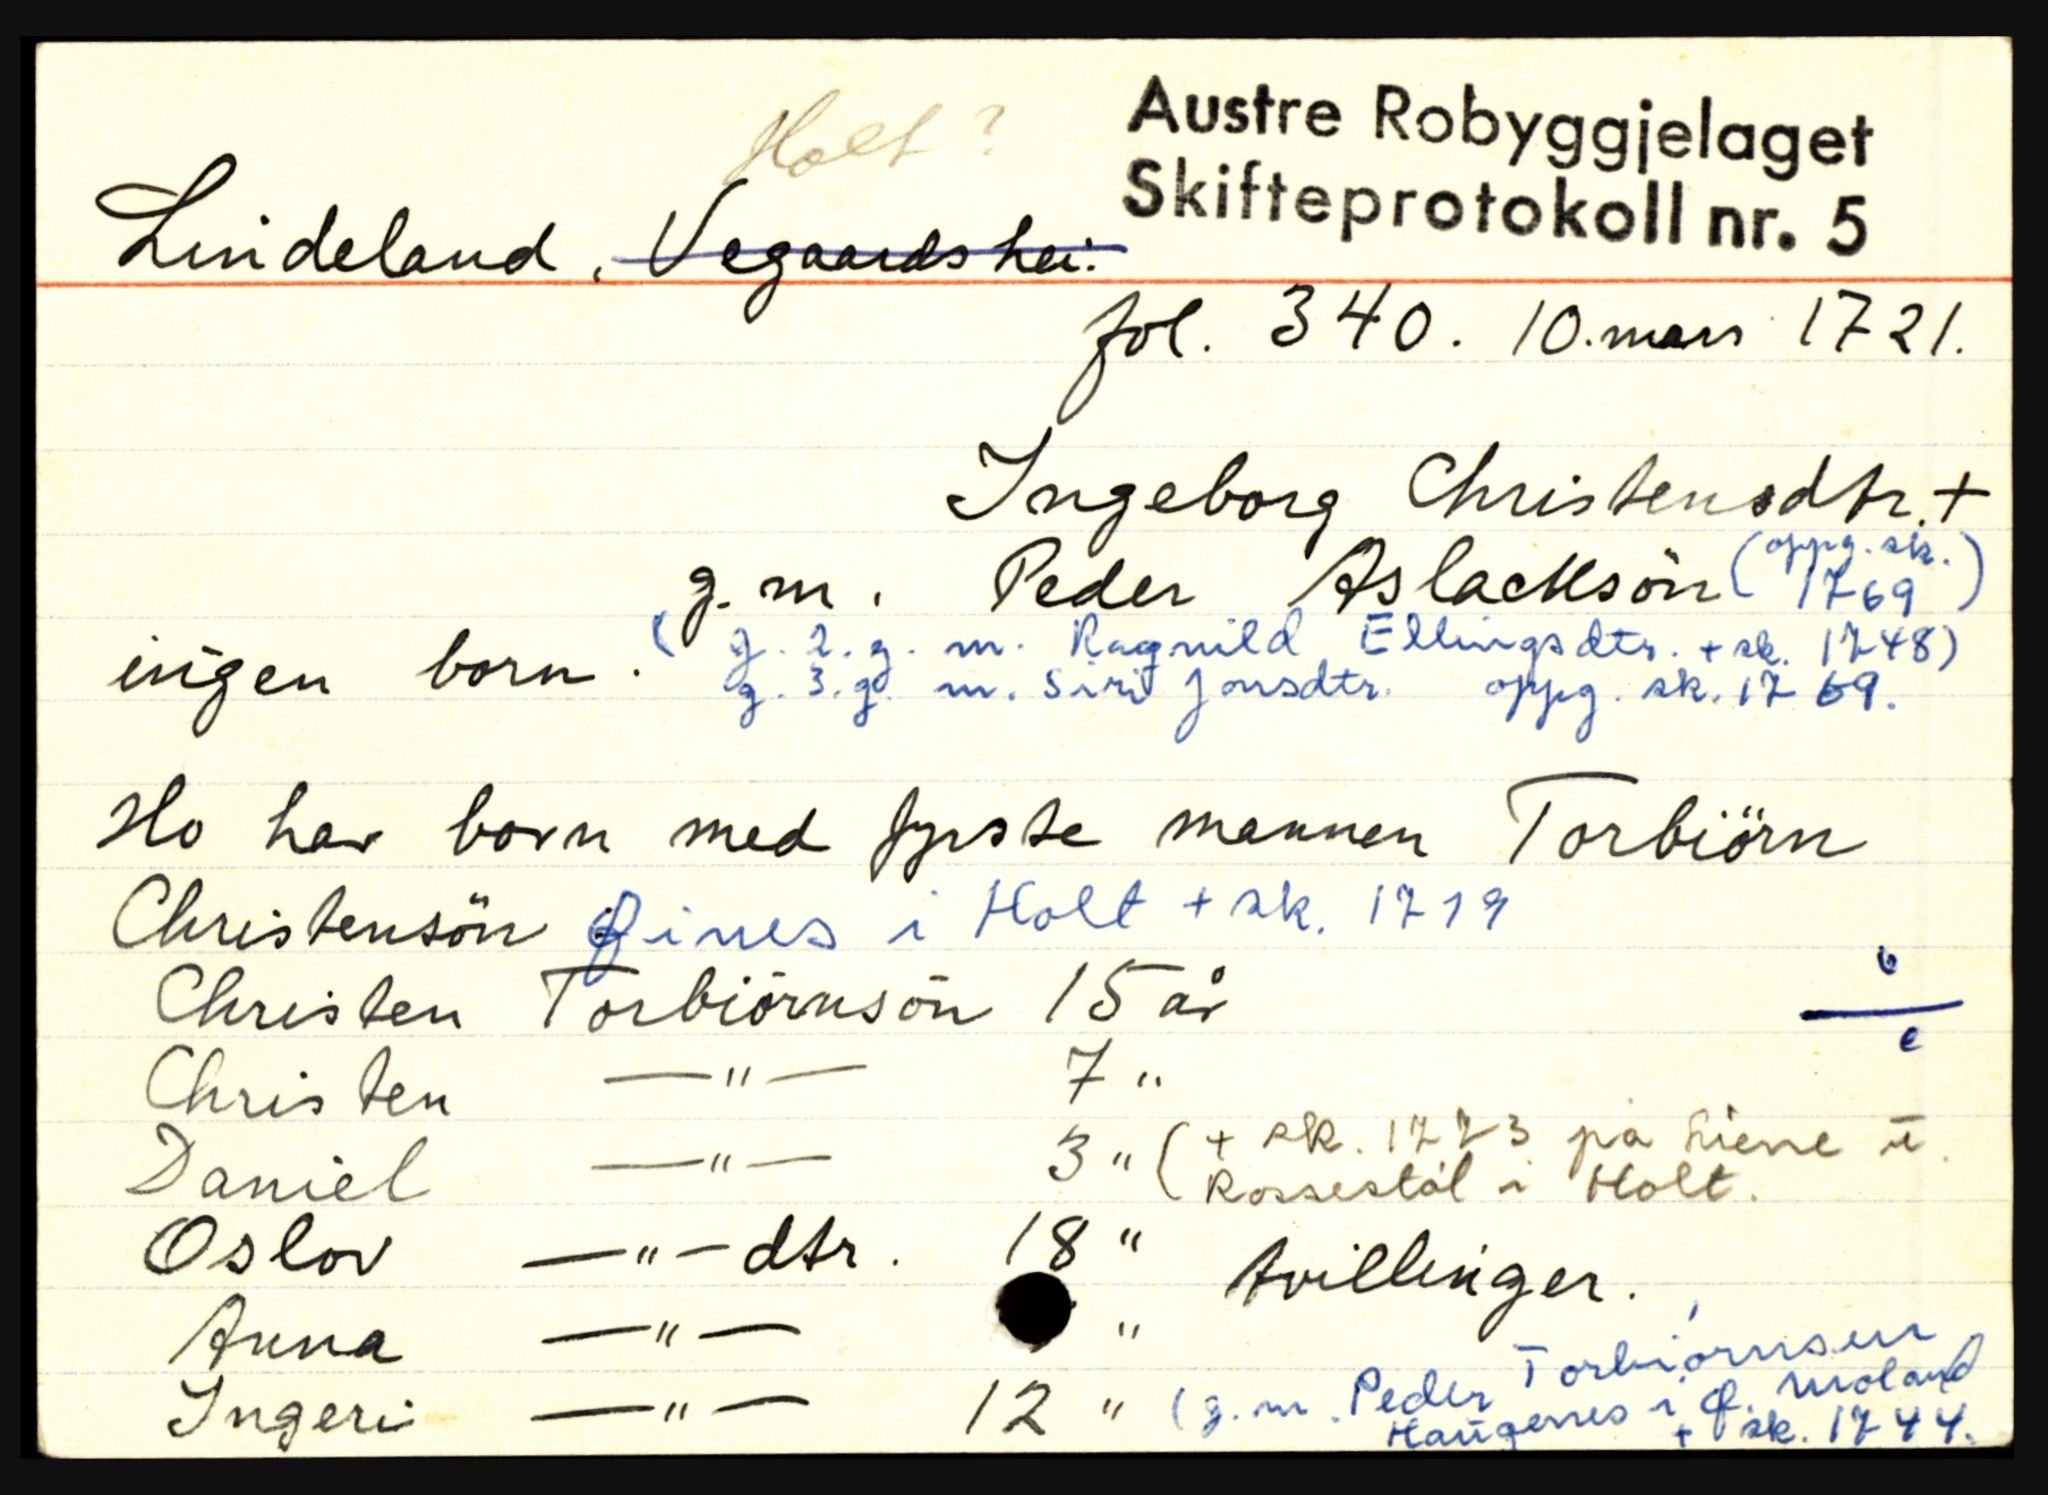 Holt?
Austre Robyggjelaget
Skifteprotokoll nr. 5
Lindeland, Vegaardshei.
fol. 340. 10. mars 1721.
Ingeborg Christensdtr. +
g.m. Peder Aslacksön (oppg. sk. 1769)
ingen born. (g. 2. g. m. Ragnild Ellingsdtr. + sk. 1748)
g. 3. g. m. Siri Jonsdtr. oppg. sk. 1769.
Ho har born med fyrste mannen Torbiörn
Christensön Fines i Holt + sk. 1719
Christen Torbiörnsön 15 år
Christen —"— 7 "
Daniel —"— 3 " (+ sk. 1773 på Liene u.
Rossestøl i Holt.
Oslov —"— dtr. 18 " tvillinger.
Anna —"— "
Ingeri —"— 12 " (g.m. Peder Torbiørnsen
Haugenes i Ø. Moland
+ sk. 1744.